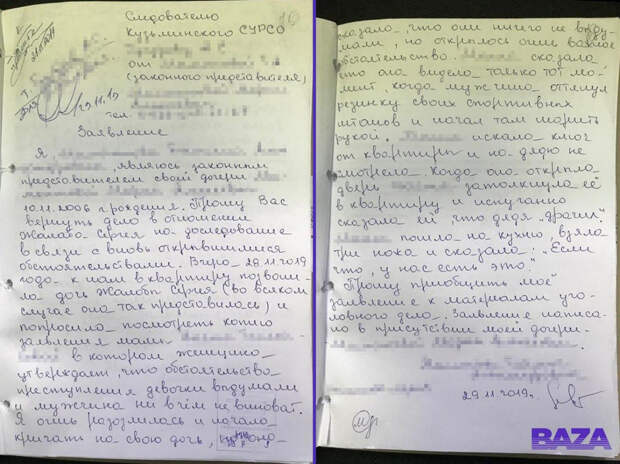 Следователю
Кузьминского СУРСО
от
(законного представителя)
тел.
29.11.19
Заявление
Я
, являюсь законным
представителем своей дочери
10.11.2006 г рождения. Прошу Вас
вернуть дело в отношении
Жалоба Сергея на доследование
в связи с вновь открывшимися
обстоятельствами. Вчера 28.11.2019
года к нам в квартиру позвони-
ла дочь Жалоба Сергея (во всяком
случае она так представилась) и
попросила посмотреть копию
заявления мамы
в котором женщина
утверждает, что обстоятельства
преступления девочки выдумали
и мужчина ни в чём не виноват.
Я очень разозлилась и начала
кричать на свою дочь,
сказала, что они ничего не выду-
мали, но открылось очень важное
обстоятельство. сказала
что она видела только тот мо-
мент, когда мужчина оттянул
резинку своих спортивных
штанов и начал там шарить
рукой. искала ключ
от квартиры и на дядю не
смотрела. Когда она открыла
дверь затолкнула её
в квартиру и испуганно
сказала ей, что дядя "дрочил"
пошла на кухню, взяла
три ножа и сказала: "Если
что, у нас есть это".
Прошу приобщить моё
заявление к материалам уго-
ловного дела. Заявление написа-
но в присутствии моей дочери
29.11.2019г.
BAZA